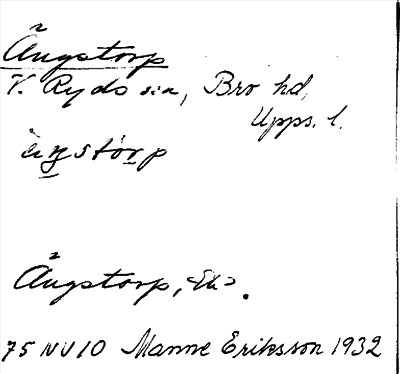 Ängstorp
V. Ryds sn, Bro hd,
Upps. l.
äŋstòrp
Ängstorp, Ek.
75 NV 10 Manne Eriksson 1932